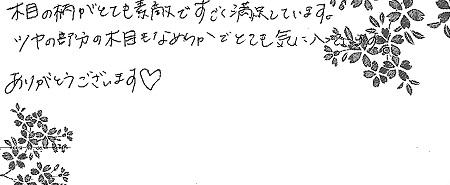 木目の柄がとても素敵ですごく満足しています。
ツヤの部分の木目もなめらかでとても気に入って
ありがとうございます♡